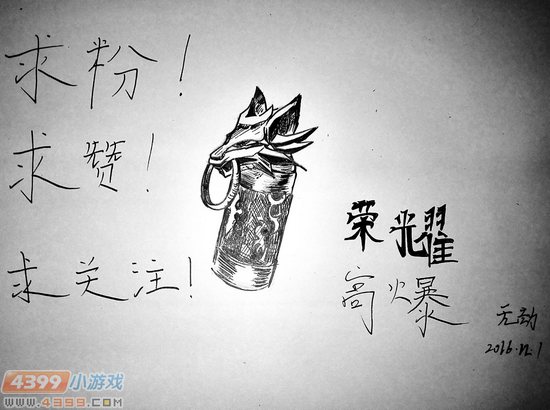 求粉！
求赞！
求关注！
荣耀
高爆
无劲
2016.12.1
4399小游戏
www.4399.com